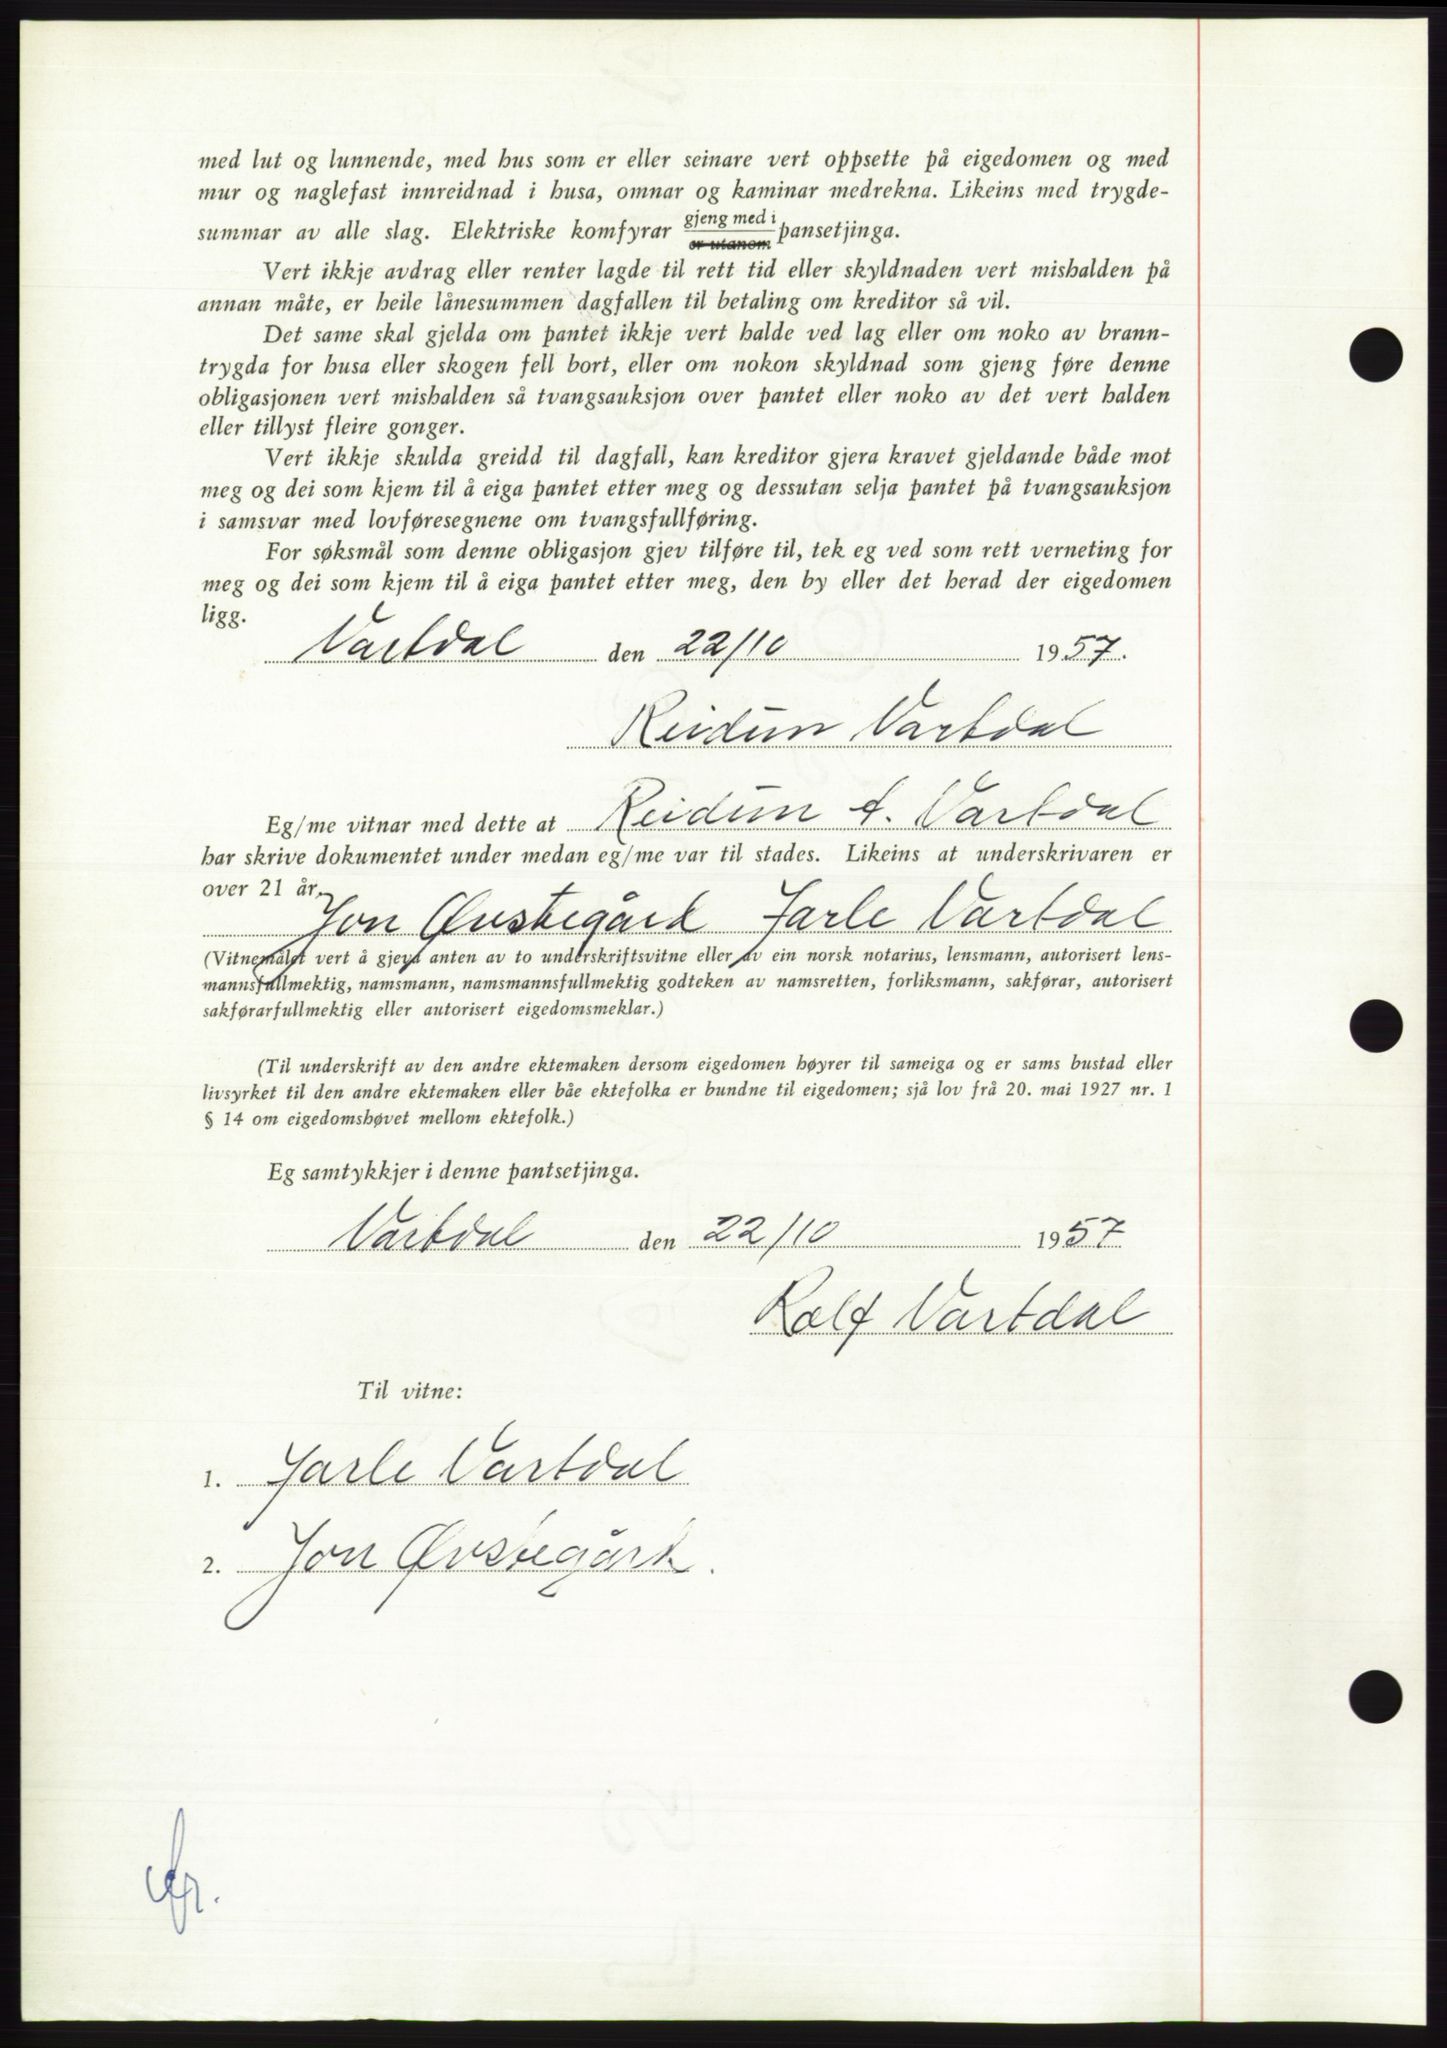 med lut og lunnende, med hus som er eller seinare vert oppsette på eigedomen og med
mur og naglefast innreidnad i husa, omnar og kaminar medrekna. Likeins med trygde-
summar av alle slag. Elektriske komfyrar gjeng med i / er utanom pansetjinga.
Vert ikkje avdrag eller renter lagde til rett tid eller skyldnaden vert mishalden på
annan måte, er heile lånesummen dagfallen til betaling om kreditor så vil.
Det same skal gjelda om pantet ikkje vert halde ved lag eller om noko av brann-
trygda for husa eller skogen fell bort, eller om nokon skyldnad som gjeng føre denne
obligasjonen vert mishalden så tvangsauksjon over pantet eller noko av det vert halden
eller tillyst fleire gonger.
Vert ikkje skulda greidd til dagfall, kan kreditor gjera kravet gjeldande både mot
meg og dei som kjem til å eiga pantet etter meg og dessutan selja pantet på tvangsauksjon
i samsvar med lovføresegnene om tvangsfullføring.
For søksmål som denne obligasjon gjev tilføre til, tek eg ved som rett verneting for
meg og dei som kjem til å eiga pantet etter meg, den by eller det herad der eigedomen
ligg.
Vartdal den 22/10 1957.
Reidun Vartdal
Eg/me vitnar med dette at Reidun A. Vartdal
har skrive dokumentet under medan eg/me var til stades. Likeins at underskrivaren er
over 21 år.
Jon Øvstegård Jarle Vartdal
(Vitnemålet vert å gjeva anten av to underskriftsvitne eller av ein norsk notarius, lensmann, autorisert lens-
mannsfullmektig, namsmann, namsmannsfullmektig godteken av namsretten, forliksmann, sakførar, autorisert
sakførarfullmektig eller autorisert eigedomsmeklar.)
(Til underskrift av den andre ektemaken dersom eigedomen høyrer til sameiga og er sams bustad eller
livsyrket til den andre ektemaken eller båe ektefolka er bundne til eigedomen; sjå lov frå 20. mai 1927 nr. 1
§ 14 om eigedomshøvet mellom ektefolk.)
Eg samtykkjer i denne pantsetjinga.
Vartdal den 22/10 1957
Rolf Vartdal
Til vitne:
1. Jarle Vartdal
2. Jon Øvstegård.